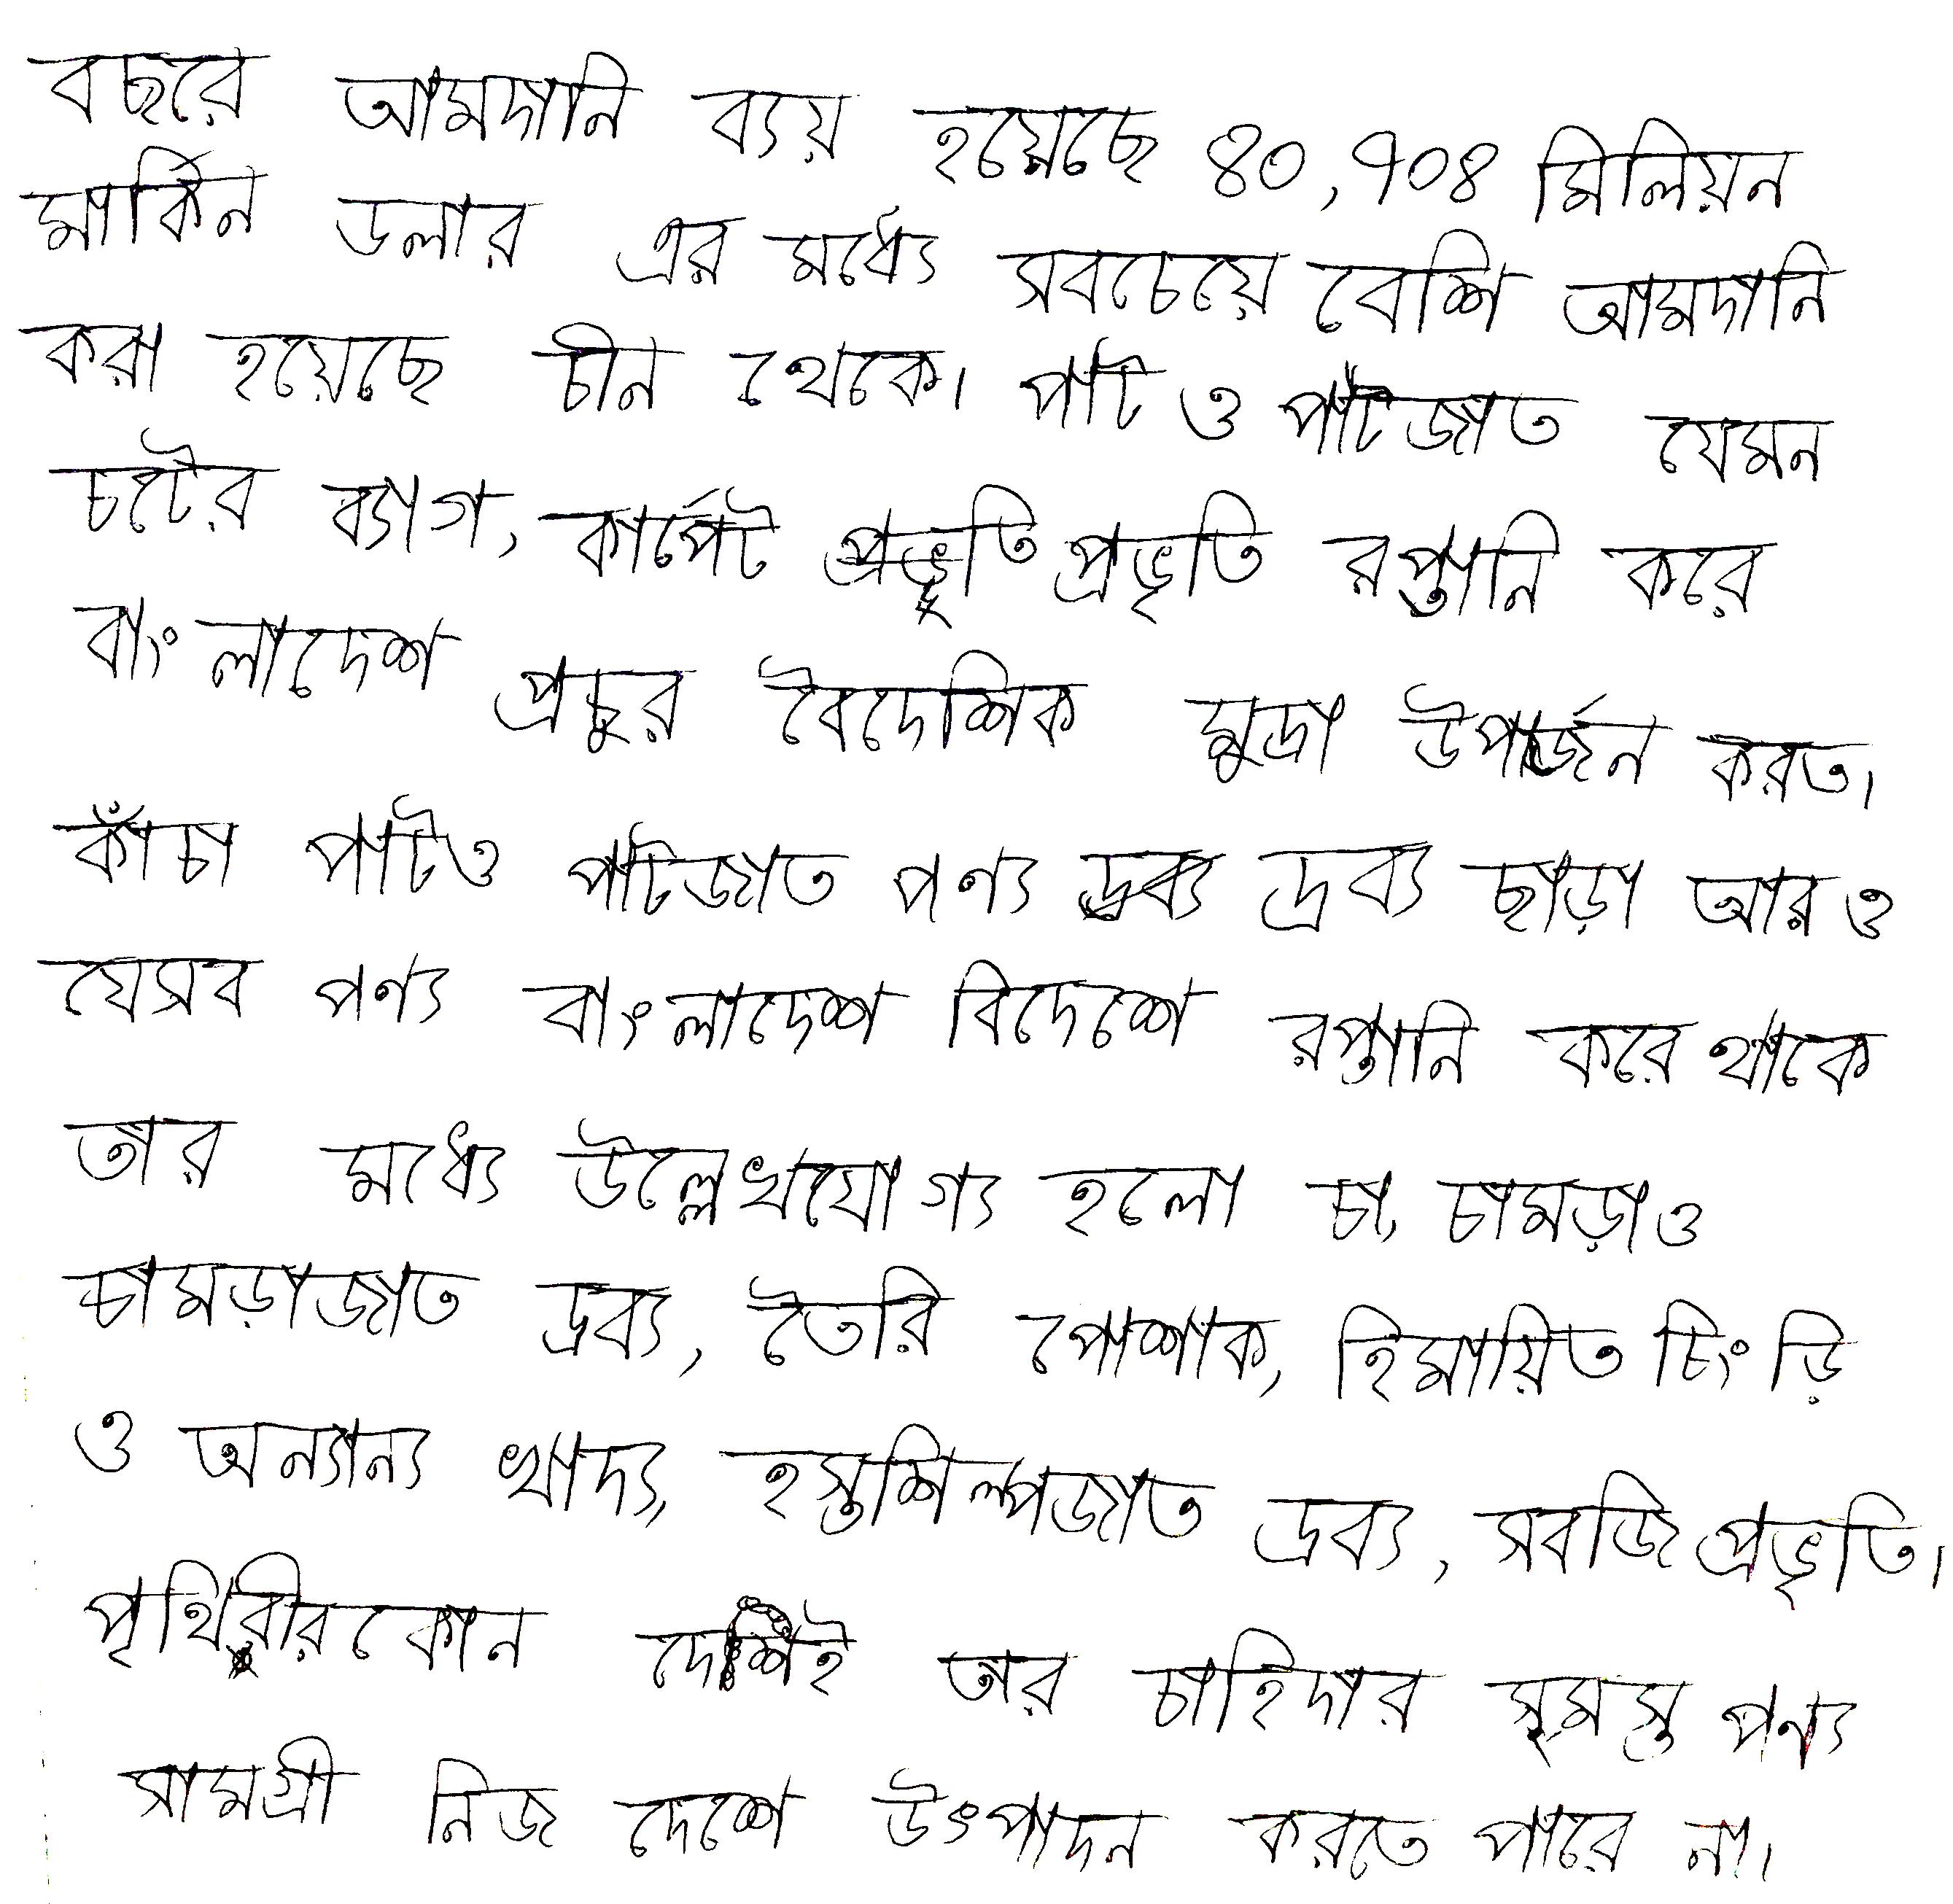 বছরে আমদানি ব্যয় হয়েছে ৪০,৭০৪ মিলিয়ন
মার্কিন ডলার এর মধ্যে সবচেয়ে বেশি আমদানি
করা হয়েছে চীন থেকে। পাট ও পাটজাত যেমন
চটের ব্যাগ, কার্পেট প্রভৃতি রপ্তানি করে
বাংলাদেশ প্রচুর বৈদেশিক মুদ্রা উপার্জন করত।
কাঁচা পাট ও পাটজাত পন্য দ্রব্য ছাড়া আরও
যেসব পন্য বাংলাদেশ বিদেশে রপ্তানি করে থাকে
তার মধ্যে উল্লেখযোগ্য হলো চা, চামড়া ও
চামড়াজাত দ্রব্য, তৈরি পোশাক, হিমায়িত চিংড়ি
ও অন্যান্য খাদ্য, হস্তশিল্পজাত দ্রব্য, সবজি প্রভৃতি।
পৃথিবীর কোন দেশই তার চাহিদার সমস্ত পন্য
সামগ্রী নিজ দেশে উৎপাদন করতে পারে না।